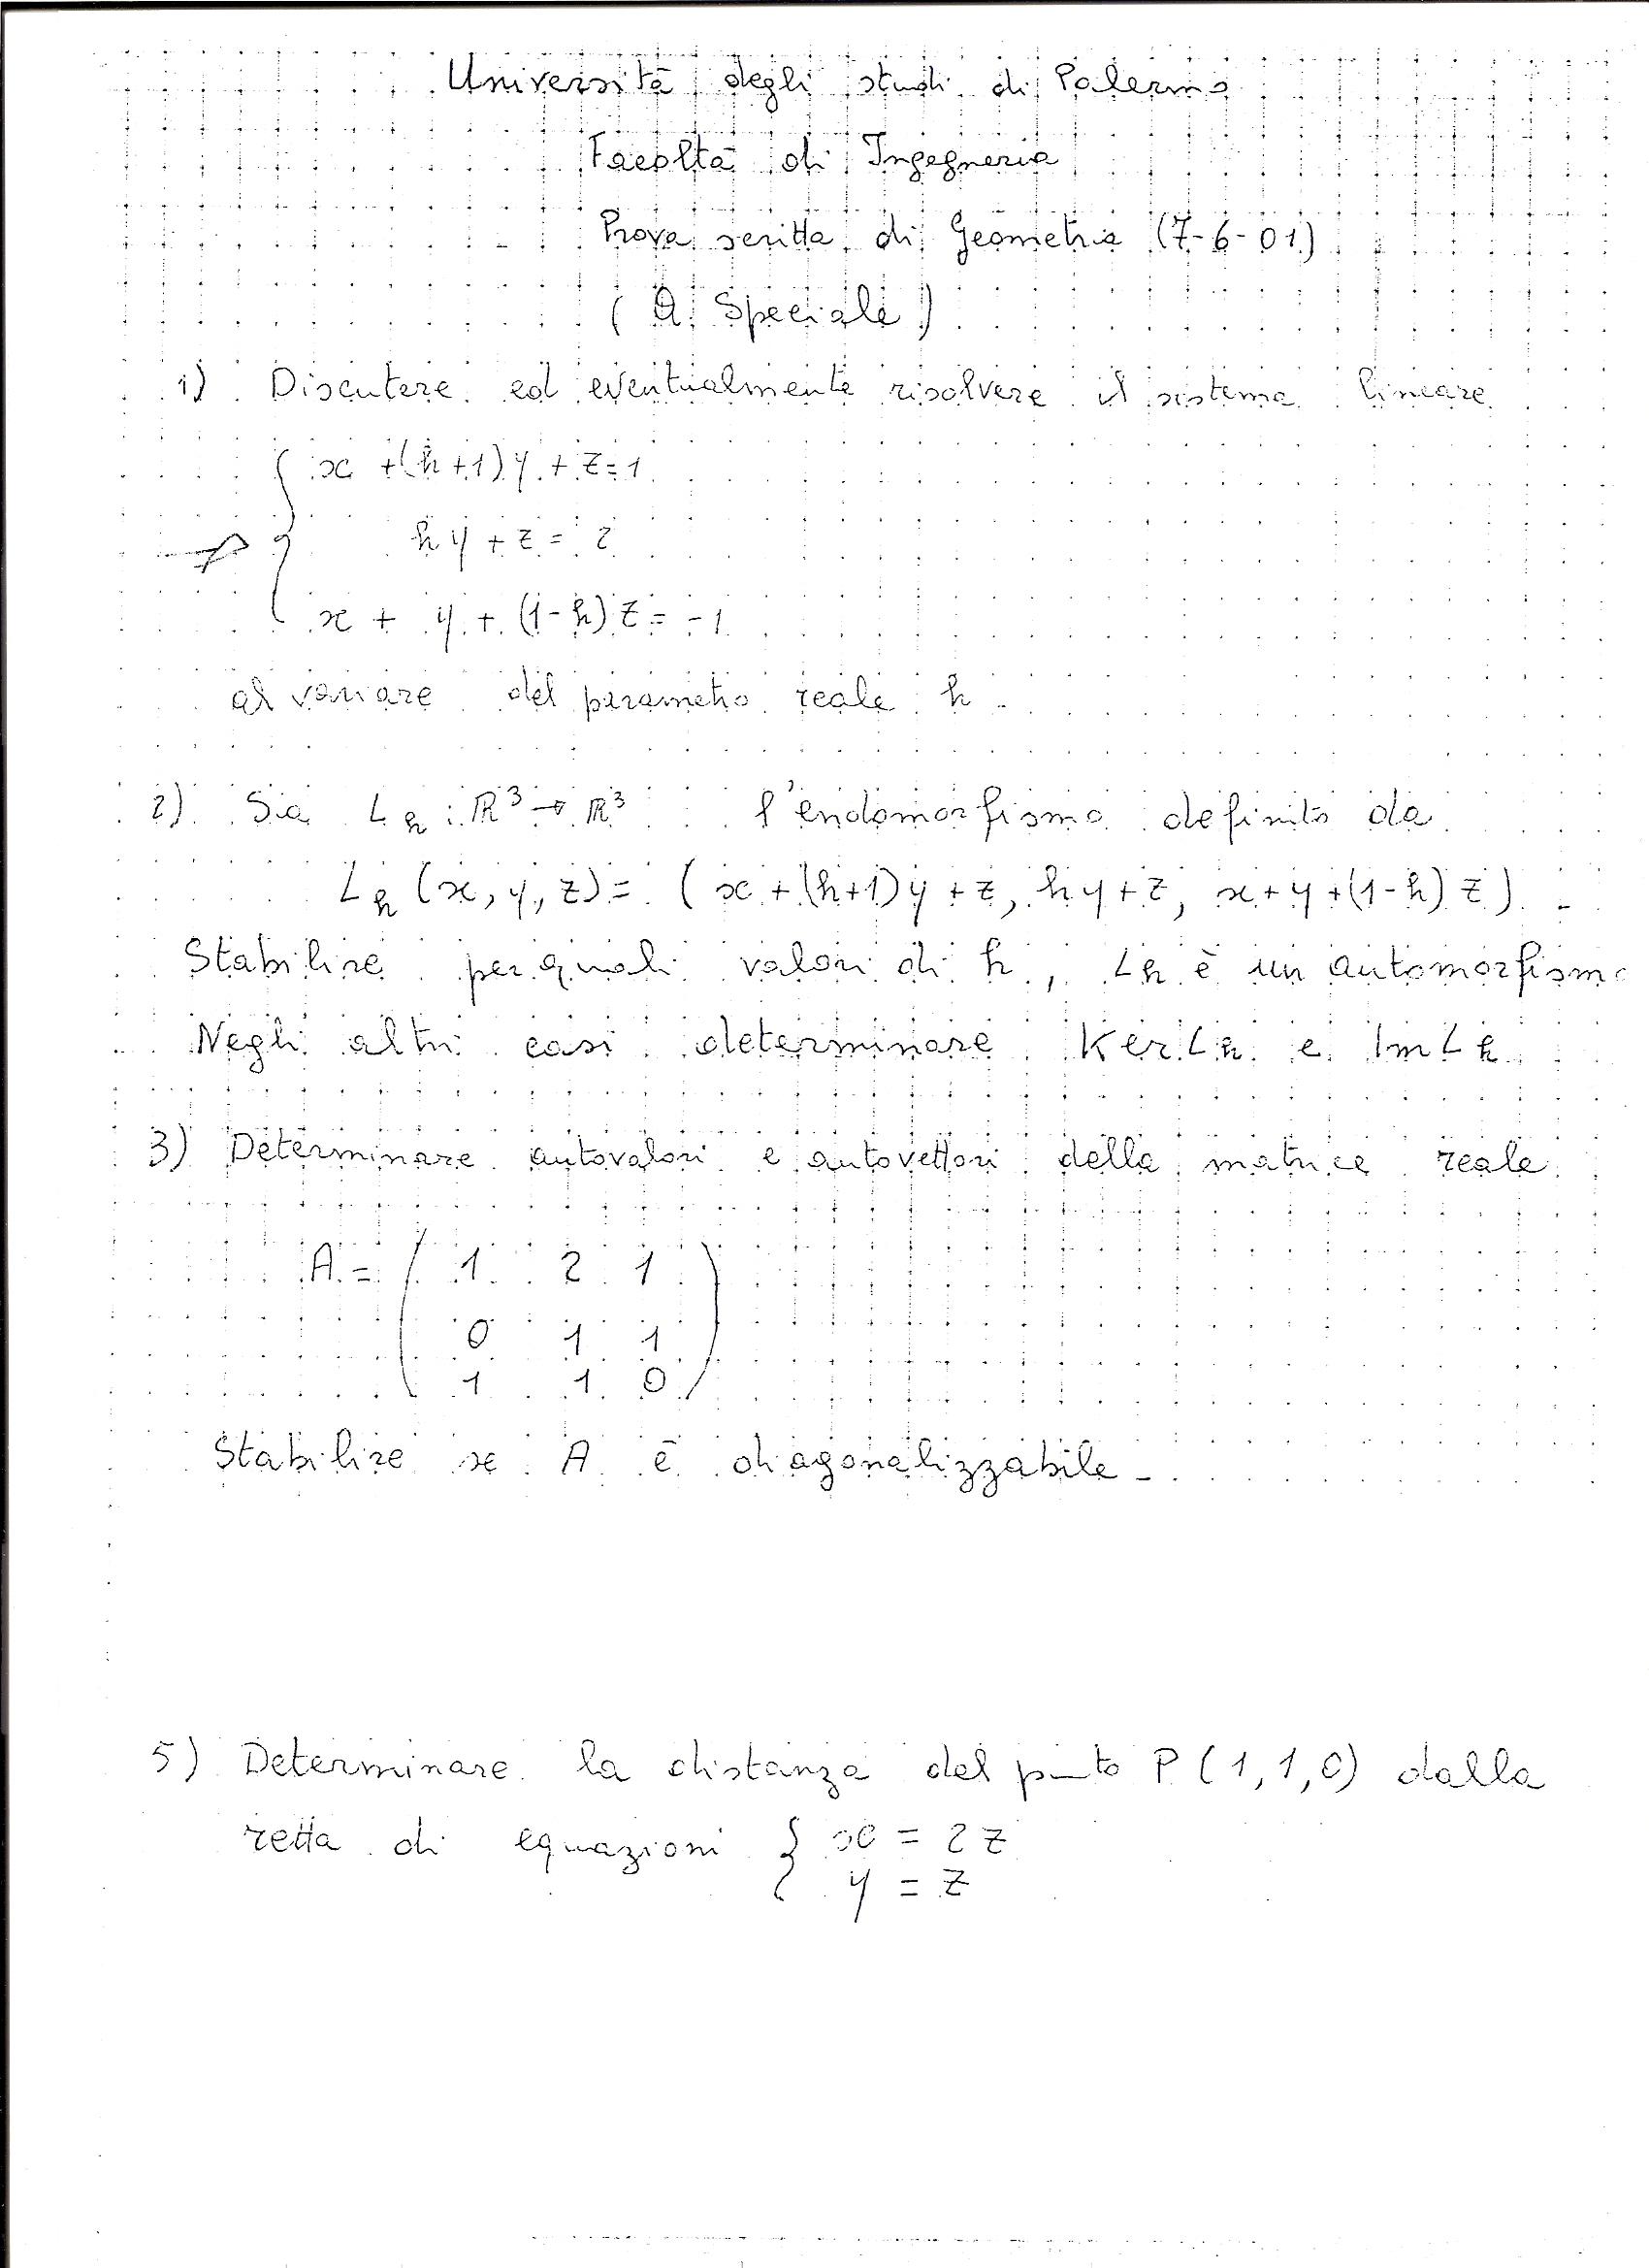 Università degli studi di Palermo
Facoltà di Ingegneria
Prova scritta di Geometria (7-6-01)
(A. Speciale)
1) Discutere ed eventualmente risolvere il sistema lineare
x + (h+1) y + z = 1
hy + z = 2
x + y + (1-h) z = -1
al variare del parametro reale h.
2) Sia Lh : R³ → R³ l'endomorfismo definito da
Lh (x, y, z) = (x + (h+1) y + z, hy + z, x + y + (1-h) z).
Stabilire per quali valori di h, Lh è un automorfismo
Negli altri casi determinare Ker Lh e Im Lh
3) Determinare autovalori e autovettori della matrice reale
A = ( 1 2 1 )
0 1 1
1 1 0
Stabilire se A è diagonalizzabile -
5) Determinare la distanza del punto P (1,1,0) dalla
retta di equazioni { x = 2z
y = z